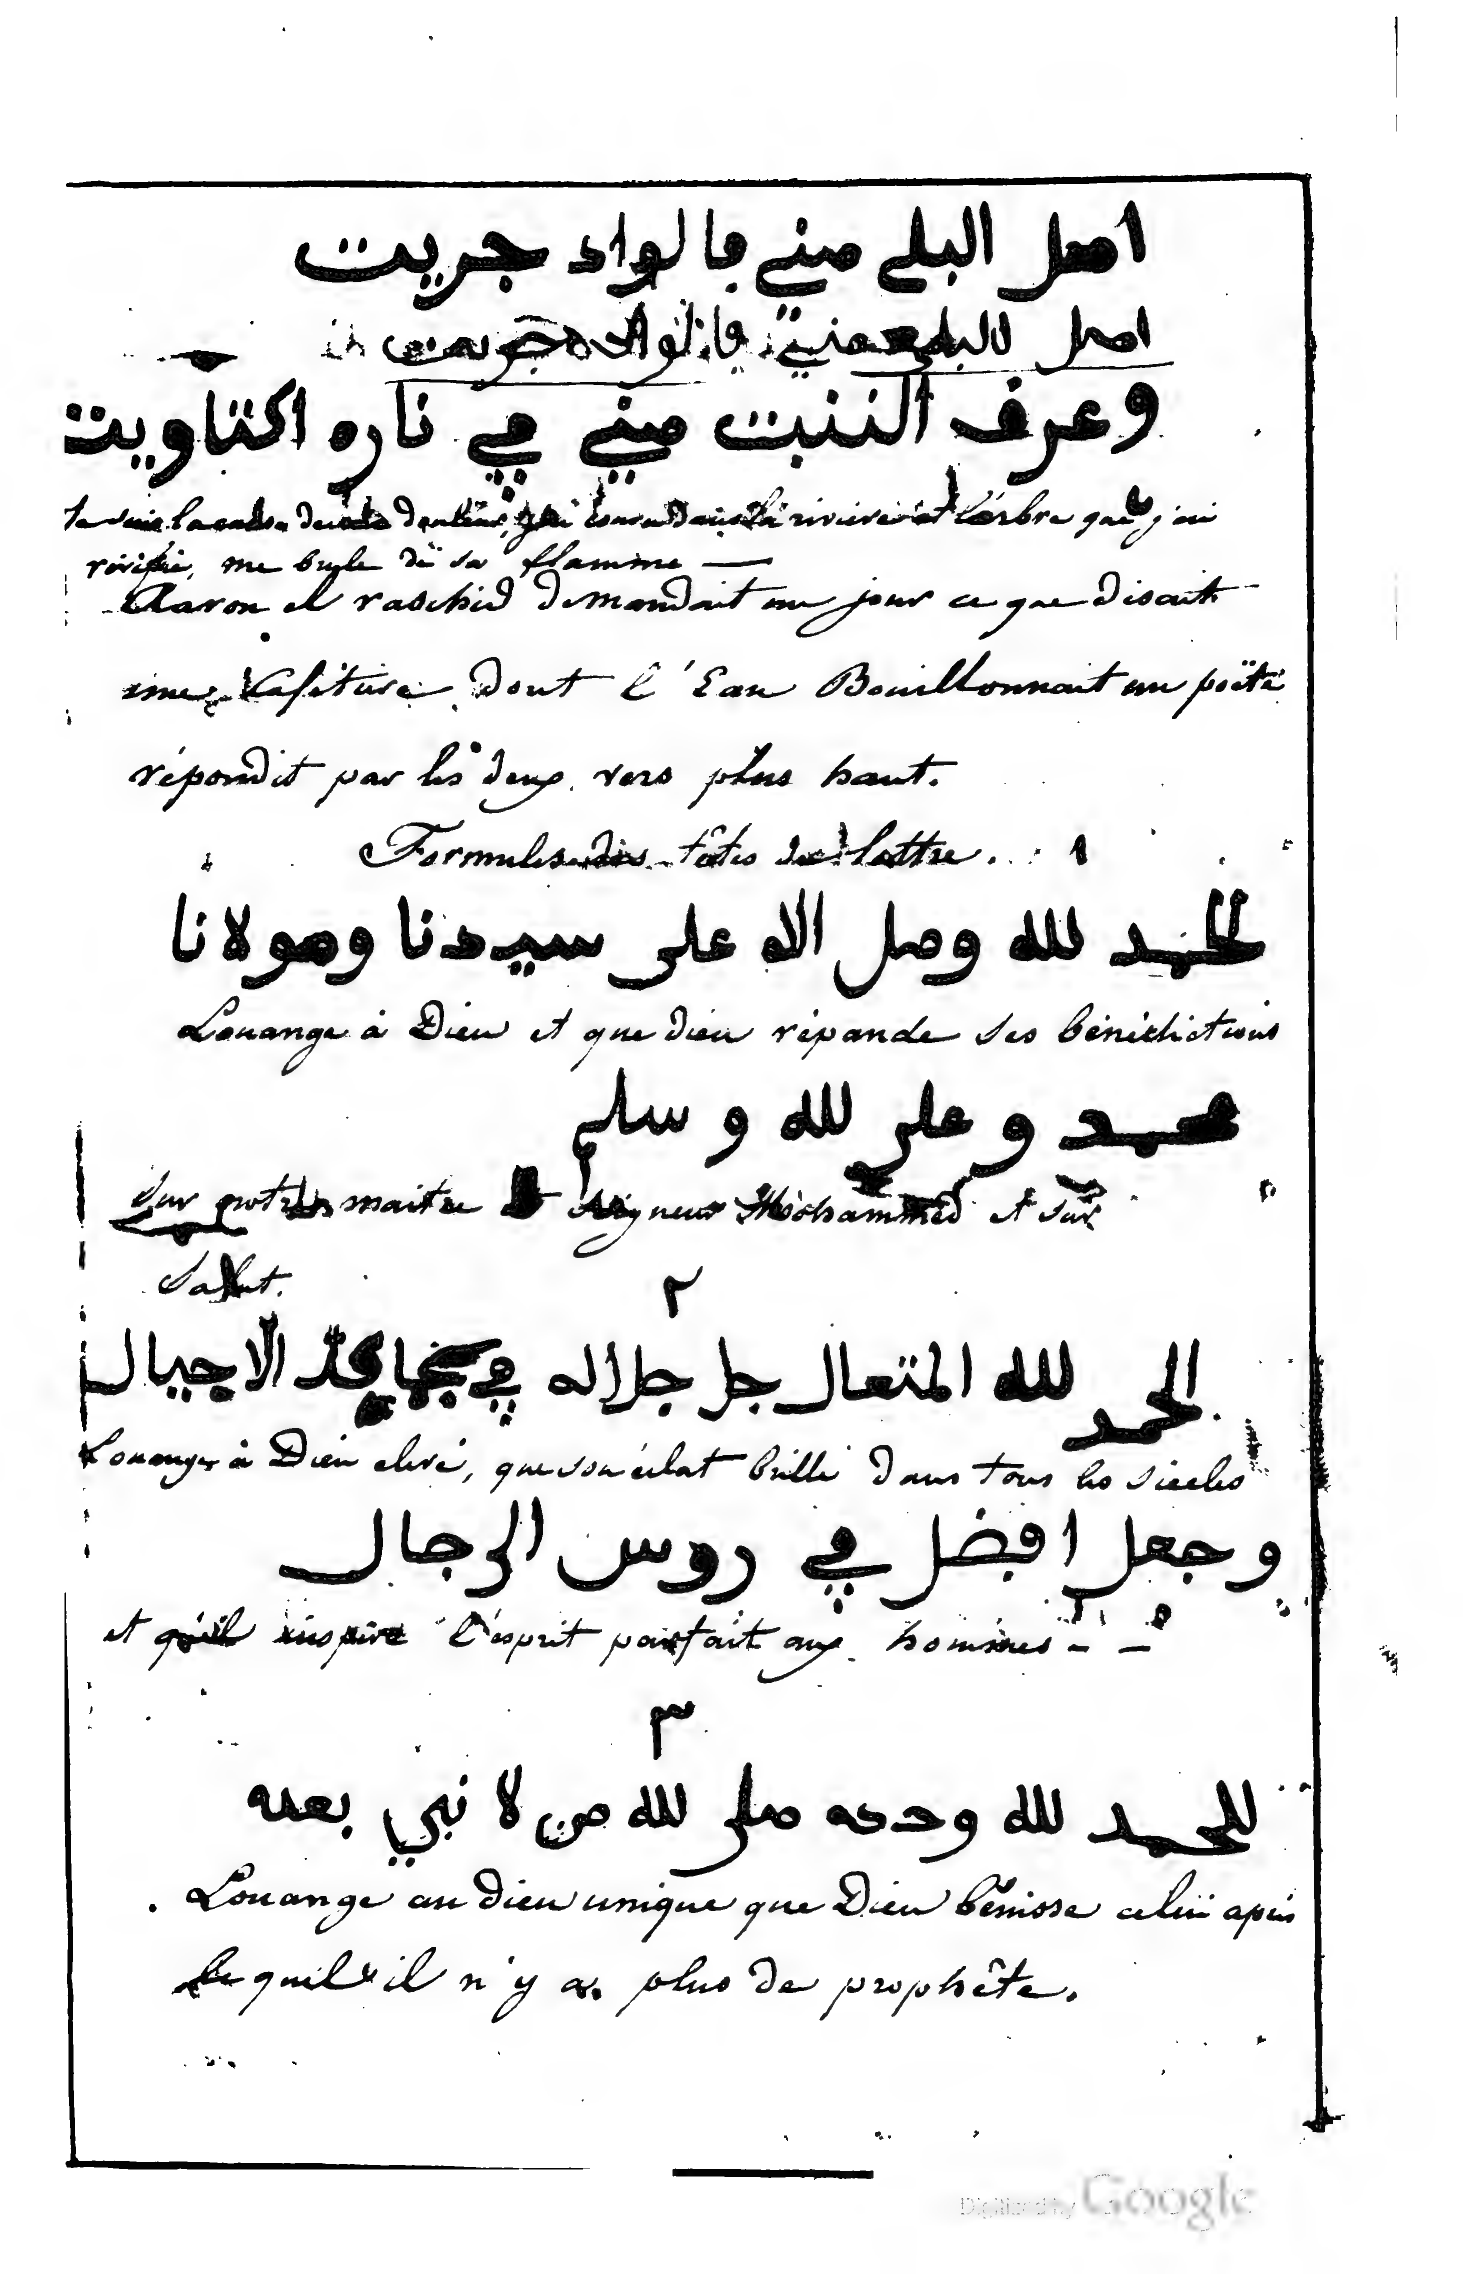 اصل البلى مني بالواد جريت
اصل البلى مني بالواد جريت
وعرف النبت مني في ناره اكتاويت
Je suis la cause de ma douleur, qui cours dans la rivière et l'arbre que j'ai
vivifié, me brule de sa flamme —
Aaron el raschid demandait un jour ce que disait
une dont l'Eau Bouillonnait un poëte
répondit par les deux vers plus haut.
Formules des têtes de lettre. 1
الحمد لله وصل الاه على سيدنا ومولانا
Louange à Dieu et que dieu répande ses bénédictions
محمد وعلى لله وسلم
Sur notre maitre et seigneur Mohammed et sur
Salut.
٢
الحمد لله المتعال جل جلاله في الاجيال
Louange à Dieu elevé, que son éclat brille dans tous les siecles
وجعل افضل في روس الرجال
et qu'il inspire l'esprit parfait aux hommes - -
٣
الحمد لله وحده صلى لله من لا نبي بعده
Louange au dieu unique que Dieu bénisse celui après
lequel il n'y a plus de prophête.
Digitized by Google